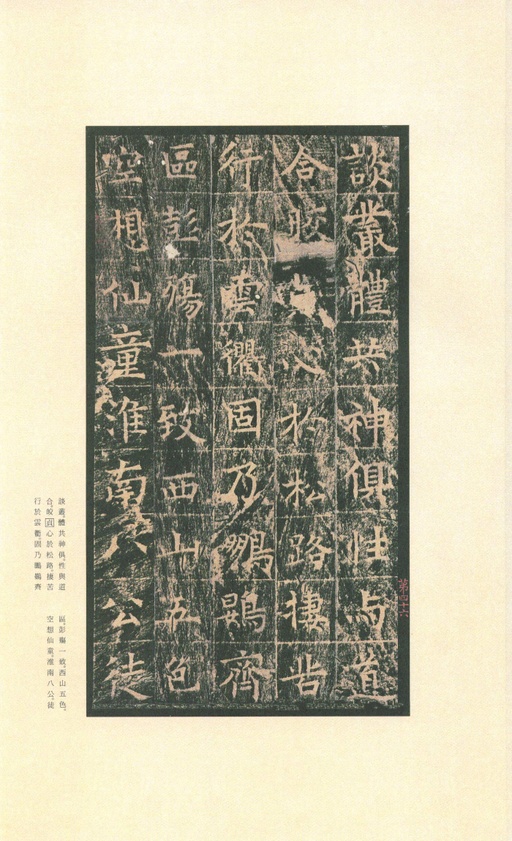 談叢體共神俱性与道
合晈貞心於松路棲苦
行於雲衢固乃鵬鷃齊
區彭殤一致西山五色
空想仙童淮南八公徒
談叢。體共神俱。性與道
合。晈貞心於松路。棲苦
行於雲衢。固乃鵬鷃齊
區。彭殤一致。西山五色。
空想仙童。淮南八公。徒